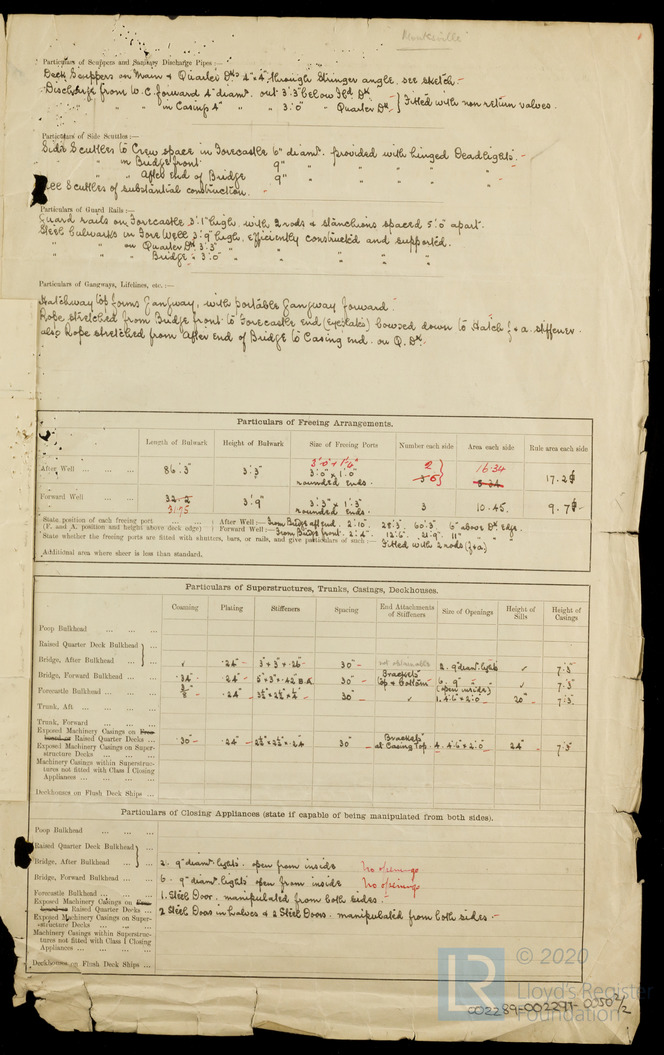 Monksville
Particulars of Scuppers and Sanitary Discharge Pipes :—
Deck Scuppers on Main & Quarter Dks 4" x 4" through Stringer angle, see sketch.-
Discharge from W.C. forward 4" diamr. out 3'.3" below Fbd Dk
" " " in Casing 4" " " 3'.0" " Quarter Dk - } Fitted with non return valves.
Particulars of Side Scuttles :—
Side Scuttles to Crew space in Forecastle 6" diamr. provided with hinged Deadlights.-
" " in Bridge front 9" " " " "
" " After end of Bridge 9" " " " "
Scuttles of substantial construction.
Particulars of Guard Rails :—
Guard rails on Forecastle 3'.1" high, with 2 rods & stanchions spaced 5'.0" apart.
Steel bulwarks in Fore Well 3'.9" high, efficiently constructed and supported.
" " on Quarter Dk 3'.3" " " " "
" " " Bridge 3'.0" " " " " "
Particulars of Gangways, Lifelines, etc. :—
Hatchway top forms Gangway, with portable Gangway forward.-
Rope stretched from Bridge front to Forecastle end (Eyeplates) bowsed down to Hatch f & a. stiffener.
also Rope stretched from after end of Bridge to Casing end. on Q. Dk.
Particulars of Freeing Arrangements.
Length of Bulwark Height of Bulwark Size of Freeing Ports Number each side Area each side Rule area each side
After Well 86'.3" 3'.3" 3'.0" x 1'.0" rounded ends. 2 16.34 17.2
Forward Well 32.2 31.75 3'.9" 3'.3" x 1'.3" rounded ends. 3 10.45. 9.7
State position of each freeing port (F. and A. position and height above deck edge) After Well :— From Bridge aft end. 2'.10". 28'.3". 60'.3". 6" above Dk edge.
Forward Well :— From Bridge front. 2'.4". 12'.6". 21'.9". 11" " " "
State whether the freeing ports are fitted with shutters, bars, or rails, and give particulars of such :— Fitted with 2 rods (f & a)
Additional area where sheer is less than standard.
Particulars of Superstructures, Trunks, Casings, Deckhouses.
Coaming Plating Stiffeners Spacing End Attachments of Stiffeners Size of Openings Height of Sills Height of Casings
Poop Bulkhead
Raised Quarter Deck Bulkhead
Bridge, After Bulkhead ✓ .24" 3" x 3" x .26" 30" 2. 9" diamr. lights ✓ 7'.3"
Bridge, Forward Bulkhead .34" .24" 5" x 3" x .42" B.A. 30" Brackets Top & Bottom 6. 9" " (open inside) ✓ 7'.3"
Forecastle Bulkhead 3/8" .24" 30" ✓ 1. 4'.6" x 2'.0" 20" 7'.3"
Trunk, Aft
Trunk, Forward
Exposed Machinery Casings on Freeboard or Raised Quarter Decks .30" .24" 2½" x 2½" x .24 30" Brackets at Casing Top 4. 4'.6" x 2'.0" 24" 7'.3"
Exposed Machinery Casings on Superstructure Decks
Machinery Casings within Superstructures not fitted with Class I Closing Appliances
Deckhouses on Flush Deck Ships
Particulars of Closing Appliances (state if capable of being manipulated from both sides).
Poop Bulkhead
Raised Quarter Deck Bulkhead
Bridge, After Bulkhead 2. 9" diamr. lights. open from inside No openings
Bridge, Forward Bulkhead 6. 9" diamr. lights open from inside No openings
Forecastle Bulkhead 1. Steel Door. manipulated from both sides.-
Exposed Machinery Casings on Freeboard or Raised Quarter Decks 2 Steel Doors in halves & 2 Steel Doors. manipulated from both sides.-
Exposed Machinery Casings on Superstructure Decks
Machinery Casings within Superstructures not fitted with Class I Closing Appliances
Deckhouses on Flush Deck Ships
LR © 2020
Lloyd's Register
Foundation
002289-002297-0050 2/2